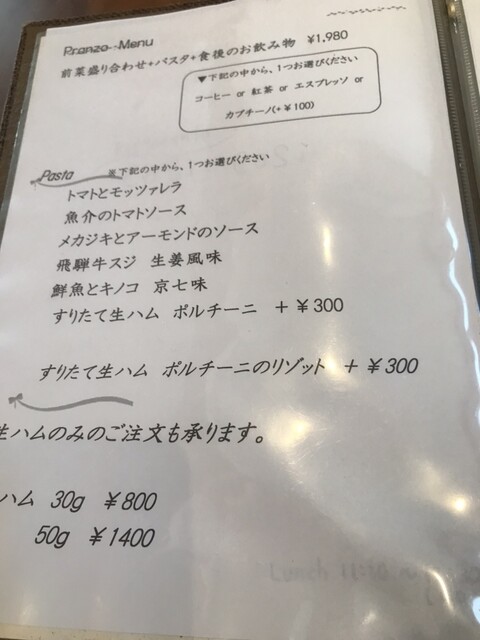 Pranzo Menu
前菜盛り合わせ+パスタ+食後のお飲み物 ¥1,980
▼下記の中から、1つお選びください
コーヒー or 紅茶 or エスプレッソ or
カプチーノ(+¥100)
Pasta ※下記の中から、1つお選びください
トマトとモッツァレラ
魚介のトマトソース
メカジキとアーモンドのソース
飛騨牛スジ 生姜風味
鮮魚とキノコ 京七味
すりたて生ハム ポルチーニ +¥300
すりたて生ハム ポルチーニのリゾット +¥300
生ハムのみのご注文も承ります。
ハム 30g ¥800
50g ¥1400
Lunch